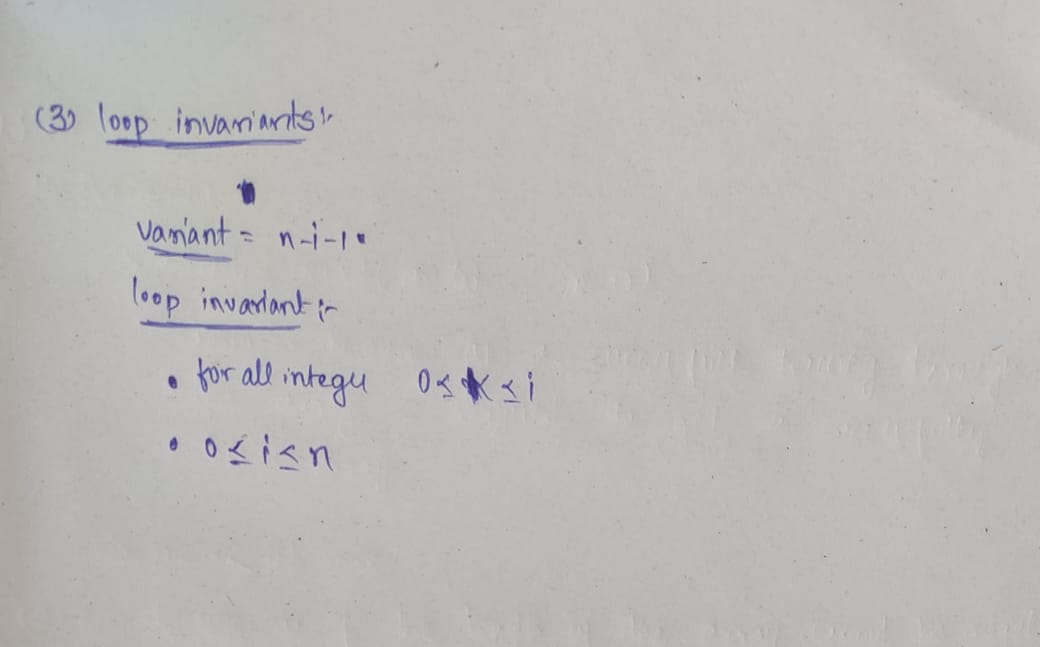 (3) loop invariants :-
variant = n-i-1.
loop invariant :-
• for all integer 0 ≤ k ≤ i
• 0 ≤ i ≤ n